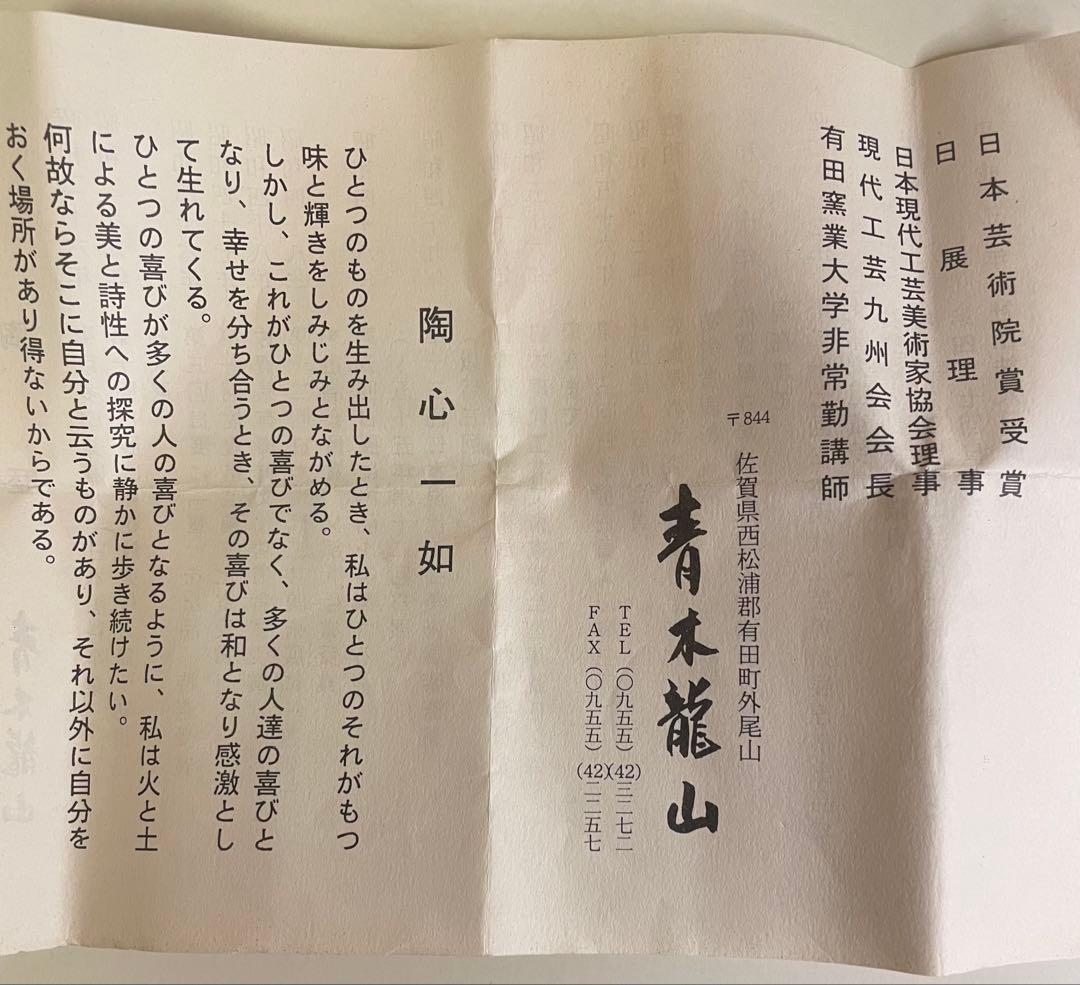 日本芸術院賞受賞
日展理事
日本現代工芸美術家協会理事
現代工芸九州会会長
有田窯業大学非常勤講師
〒844
佐賀県西松浦郡有田町外尾山
青木龍山
TEL(〇九五五)(42)三二七二
FAX(〇九五五)(42)二二五七
陶心一如
ひとつのものを生み出したとき、私はひとつのそれがもつ
味と輝きをしみじみとながめる。
しかし、これがひとつの喜びでなく、多くの人達の喜びと
なり、幸せを分ち合うとき、その喜びは和となり感激とし
て生れてくる。
ひとつの喜びが多くの人の喜びとなるように、私は火と土
による美と詩性への探究に静かに歩き続けたい。
何故ならそこに自分と云うものがあり、それ以外に自分を
おく場所があり得ないからである。